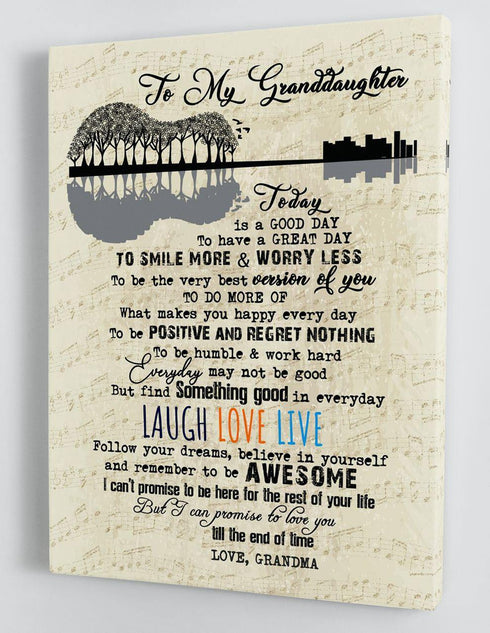 To My Granddaughter
Today
is a GOOD DAY
To have a GREAT DAY
TO SMILE MORE & WORRY LESS
To be the very best version of you
TO DO MORE OF
What makes you happy every day
To be POSITIVE AND REGRET NOTHING
To be humble & work hard
Everyday may not be good
But find Something good in everyday
LAUGH LOVE LIVE
Follow your dreams, believe in yourself
and remember to be AWESOME
I can't promise to be here for the rest of your life
But I can promise to love you
till the end of time
LOVE, GRANDMA